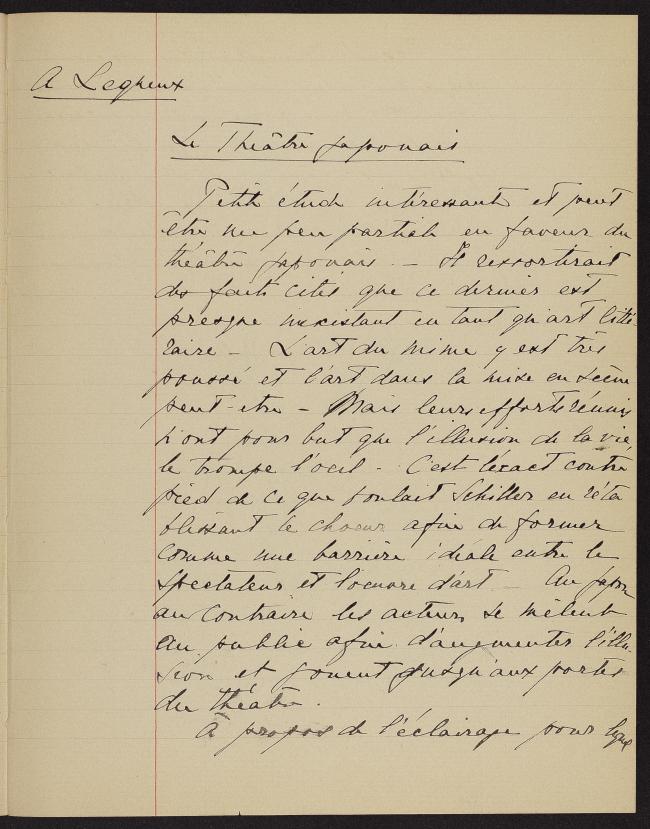 A Lequeux
Le Théâtre japonais
Petite étude intéressante et peut
être un peu partiale en faveur du
théâtre japonais. — Il ressortirait
des faits cités que ce dernier est
presque inexistant en tant qu'art litté-
raire — L'art du mime y est très
poussé et l'art dans la mise en scène
peut-etre — Mais leurs efforts réunis
n'ont pour but que l'illusion de la vie,
le trompe l'oeil — C'est l'exact contre
pied de ce que voulait Schiller en réta
blissant le choeur afin de former
comme une barrière idéale entre le
spectateur et l'oeuvre d'art — Au japon
au contraire les acteurs se mêlent
au public afin d'augmenter l'illu-
sion et jouent jusqu'aux portes
du théâtre.
A propos de l'éclairage pour